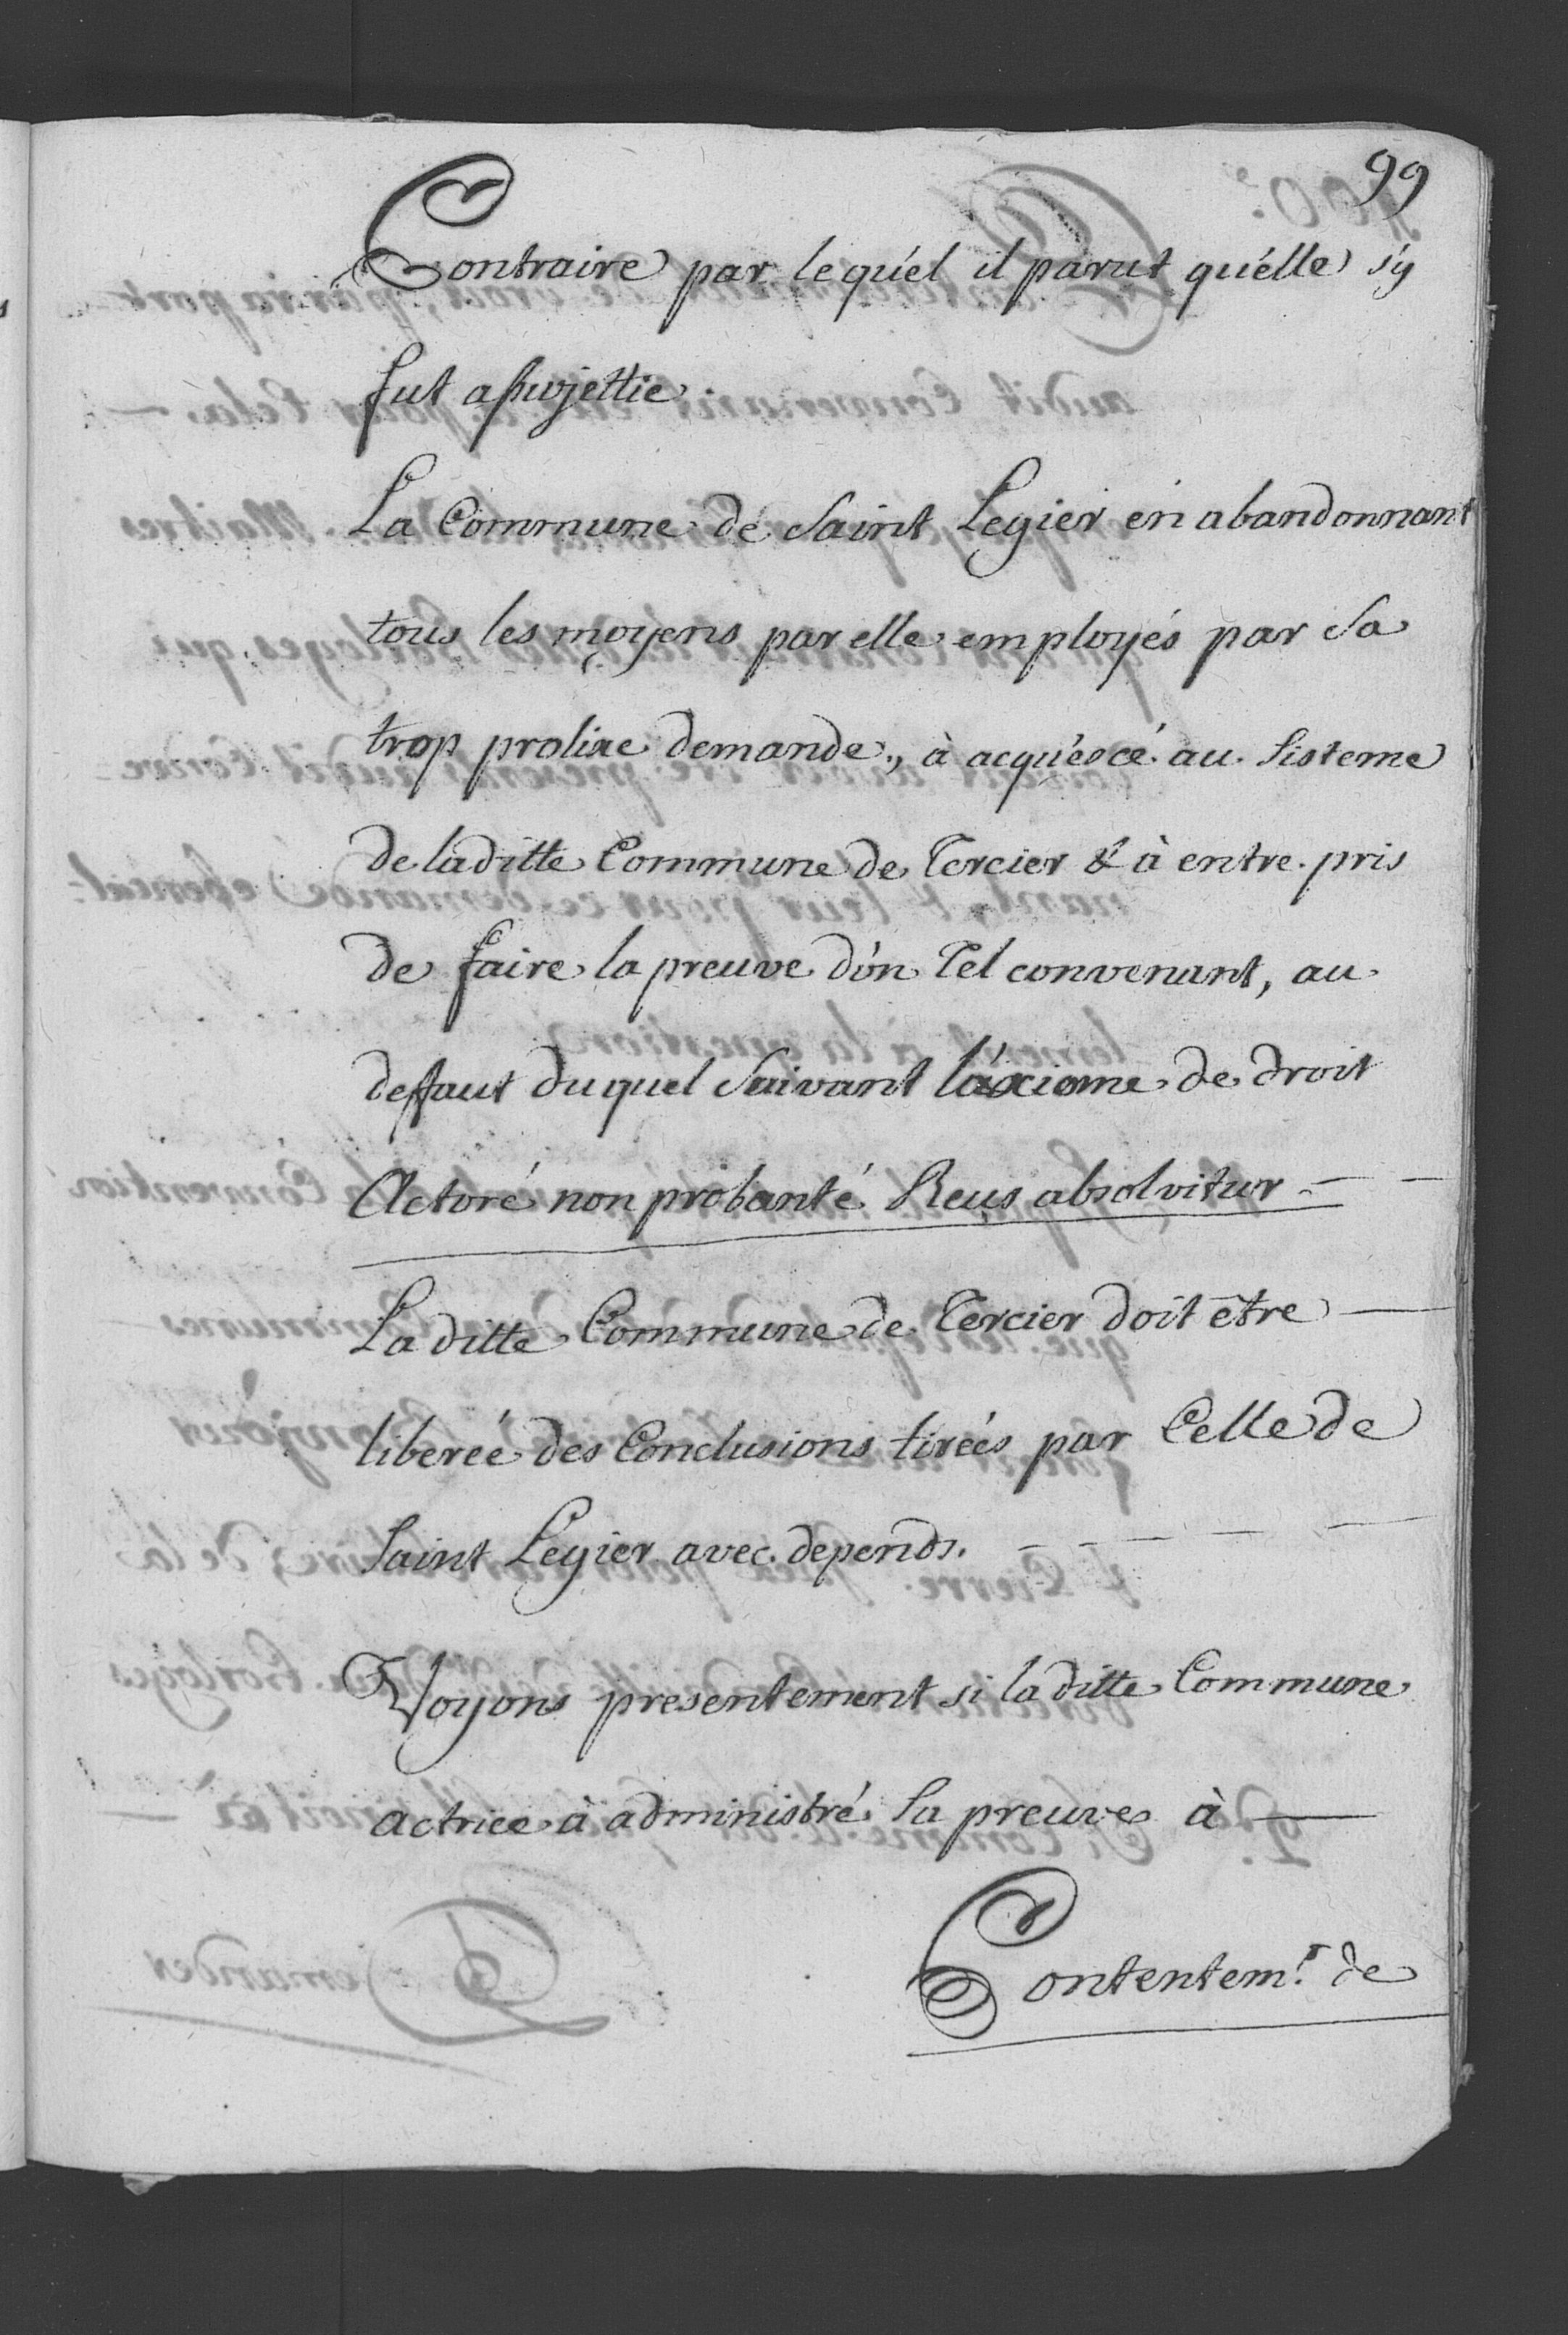 99
Contraire par lequ'el il parut qu'elle s'y
fut assujettie
La Commune de Saint Legier en abandonnant
tous les moyens par elle employés par Sa
trop prolixe demande, à acquiescé au Sisteme
de laditte Commune de Tercier & à entre pris
de faire la preuve d'ún Tel convenant, au
deffaut duquel Suivant l'áxiome de droit
Actoré non probanté Reus absolvitur - - -
La ditte Commune de Tercier doit être —
liberée des Conclusions tirées par Celle de
Saint Legier avec depends. - - - - -
Voyons presentement si laditte Commune
actrice à administré Sa preuve à —
Contentem.t de